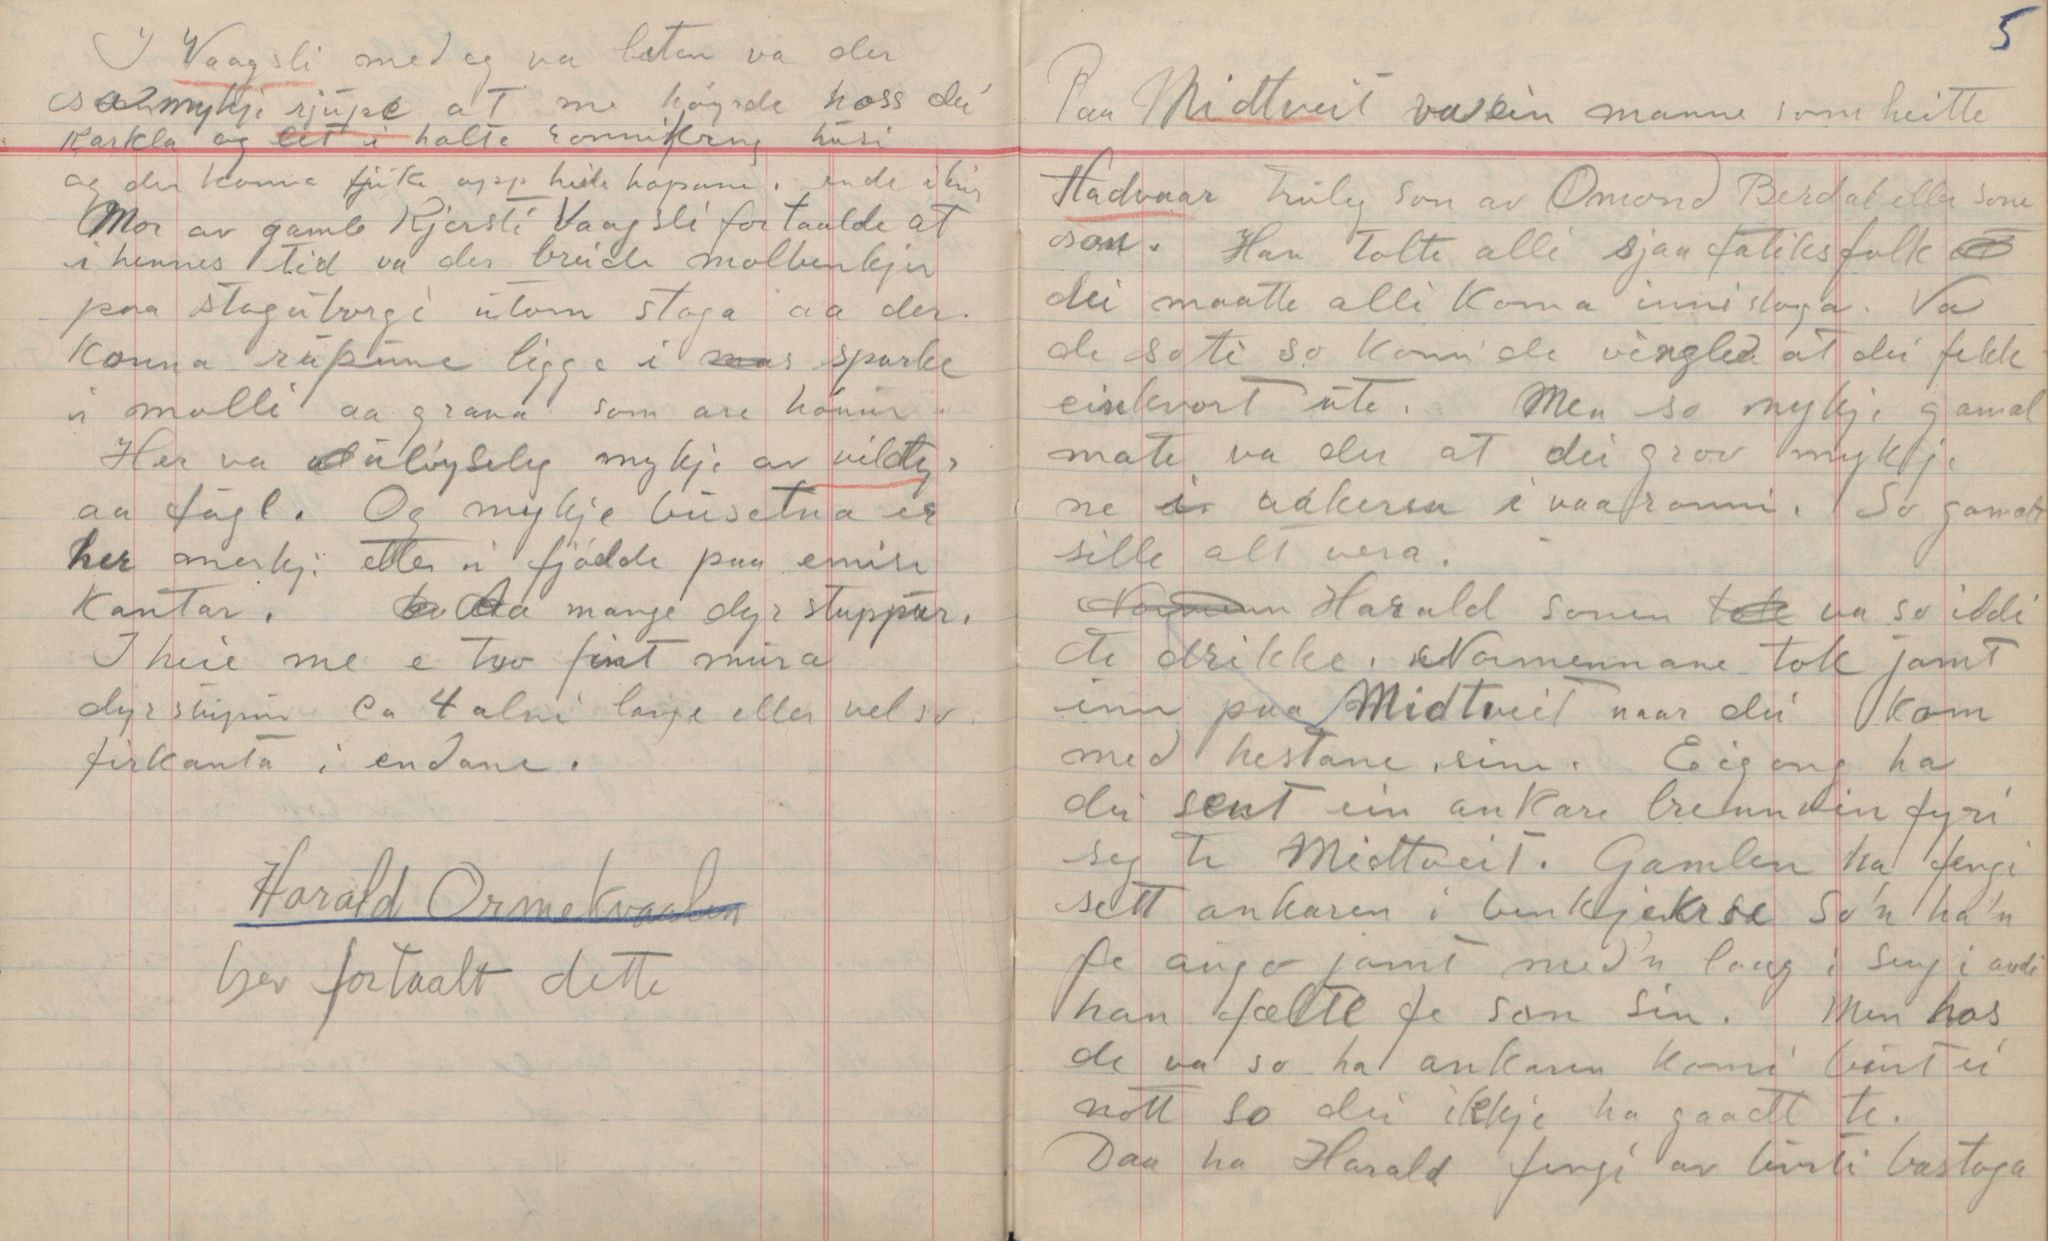 I Vaagsli med eg va liten va der
so mykje rjupe at me høyrde hoss dei
karkla og let i halte romnikring husi
og der konne fjuke opp heile hopane.
Mor av gamle Kjersti Vaagsli fortaalde at
i hennes tid va der breide moldbenkjer
paa stoguborgi utom stoga aa der
konna rupune ligge i sparke
i molli aa grava som are hønur.
Her va uløyseleg mykje av vildty,
aa fugl. Og mykje busetna er
her merkji etter i fjødde paa emise
kantar. Aa mange dyrstuppur.
I heie me e tvo fint mura
dyrstupur Ca 4 alni lange eller vel so
firkanta i endane.
Harald Ormekvaalen
hev fortaalt dette
5
Paa Midtveit va ein manne som heitte
Hadvaar truleg son av Omond Berdal eller sone
son. Han tolte alli sjaa fatiksfolk
dei maatte alli koma inni stoga. Va
de so ti so konn de vengled at dei fekk
einkvort ute. Men so mykje gamal
mate va der at dei grov mykje
ne i aakeren i vaaronni. So gamalt
sille alt vera.
Harald sonen va so iddi
te drikke. Normennane tok jamt
inn paa Midtveit naar dei kom
med hestane sine. Eigong ha
dei sent ein ankare brennvin fyri
seg te Midtveit. Gamlen ha fengi
sett ankaren i benkjekroe So'n ha'n
fe augo jamt med'n laag i seng i avdi
han fælte fe son sin. Men hos
de va so ha ankaren komi burt ei
nott so dei ikkje ha gaadt te.
Daa ha Harald fengi av burti bastoga